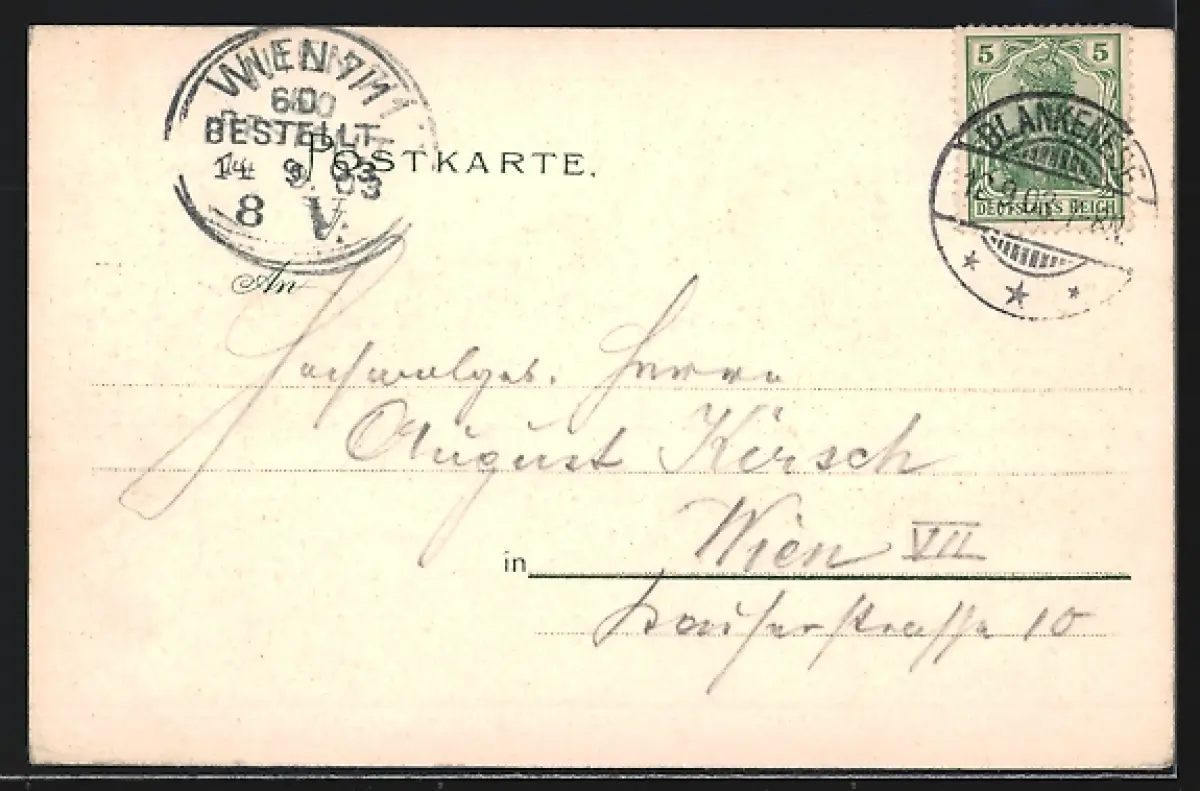 WIEN 7/1 1
6/D
BESTELLT
14 9 03
8 V.
POSTKARTE.
5 5
DEUTSCHES REICH
BLANKENESE
12.9.03.
An
Hochwolgeb. Herrn
August Kirsch
in Wien VII
Kaiserstrasse 10